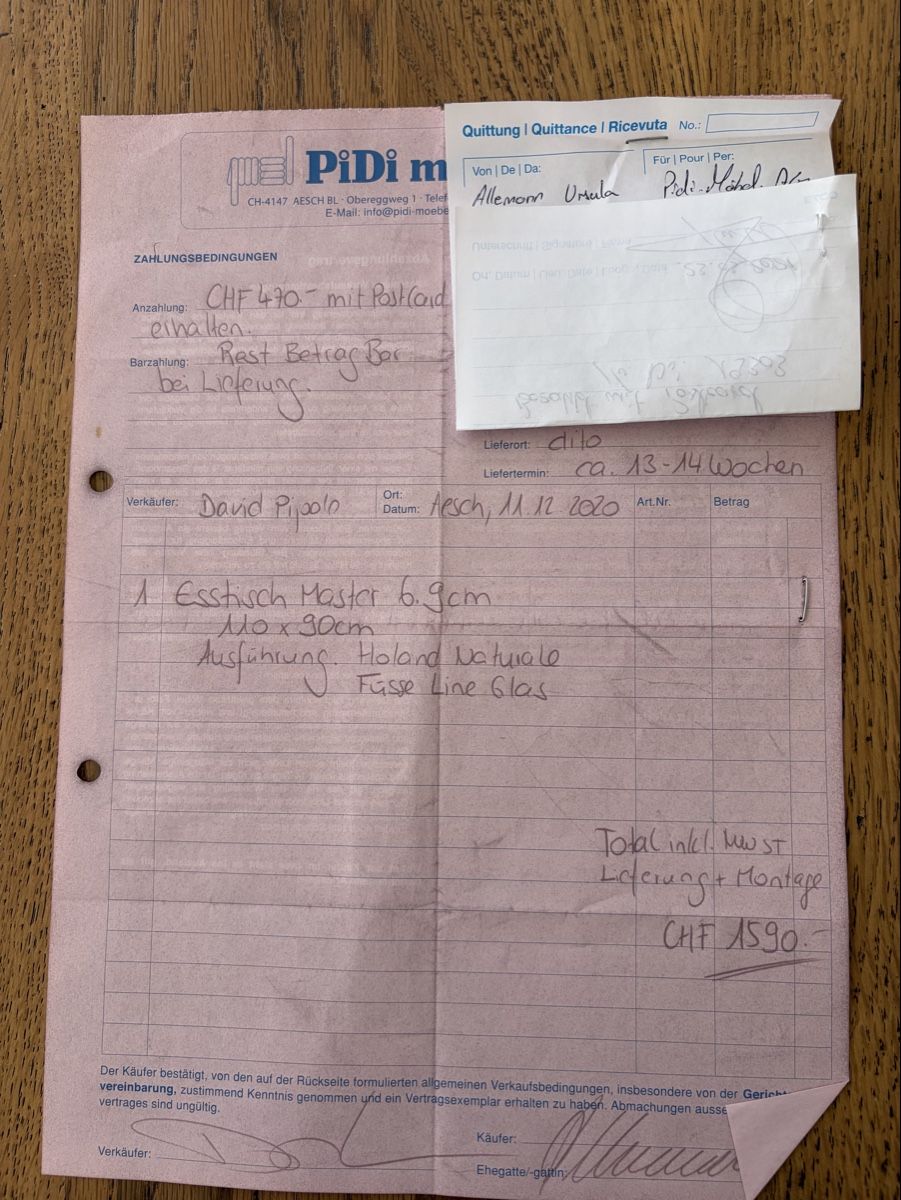 PiDi m
CH-4147 AESCH BL · Obereggweg 1 · Telef
E-Mail: info@pidi-moebe
Quittung | Quittance | Ricevuta No.:
Von | De | Da:
Für | Pour | Per:
Allemann Ursula
Pidi-Möbel
ZAHLUNGSBEDINGUNGEN
Anzahlung: CHF 470.- mit PostCard
erhalten.
Barzahlung: Rest Betrag Bar
bei Lieferung.
Lieferort: dito
Liefertermin: ca. 13-14 Wochen
Verkäufer: David Pipolo
Ort:
Datum: Aesch, 11.12 2020
Art.Nr.
Betrag
1 Esstisch Master 6.9cm
110 x 90cm
Ausführung. Holand Naturale
Füsse Line Glas
Total inkl. MWST
Lieferung + Montage
CHF 1590.-
Der Käufer bestätigt, von den auf der Rückseite formulierten allgemeinen Verkaufsbedingungen, insbesondere von der Gericht
vereinbarung, zustimmend Kenntnis genommen und ein Vertragsexemplar erhalten zu haben. Abmachungen ausse
vertrages sind ungültig.
Verkäufer:
Käufer:
Ehegatte/-gattin: